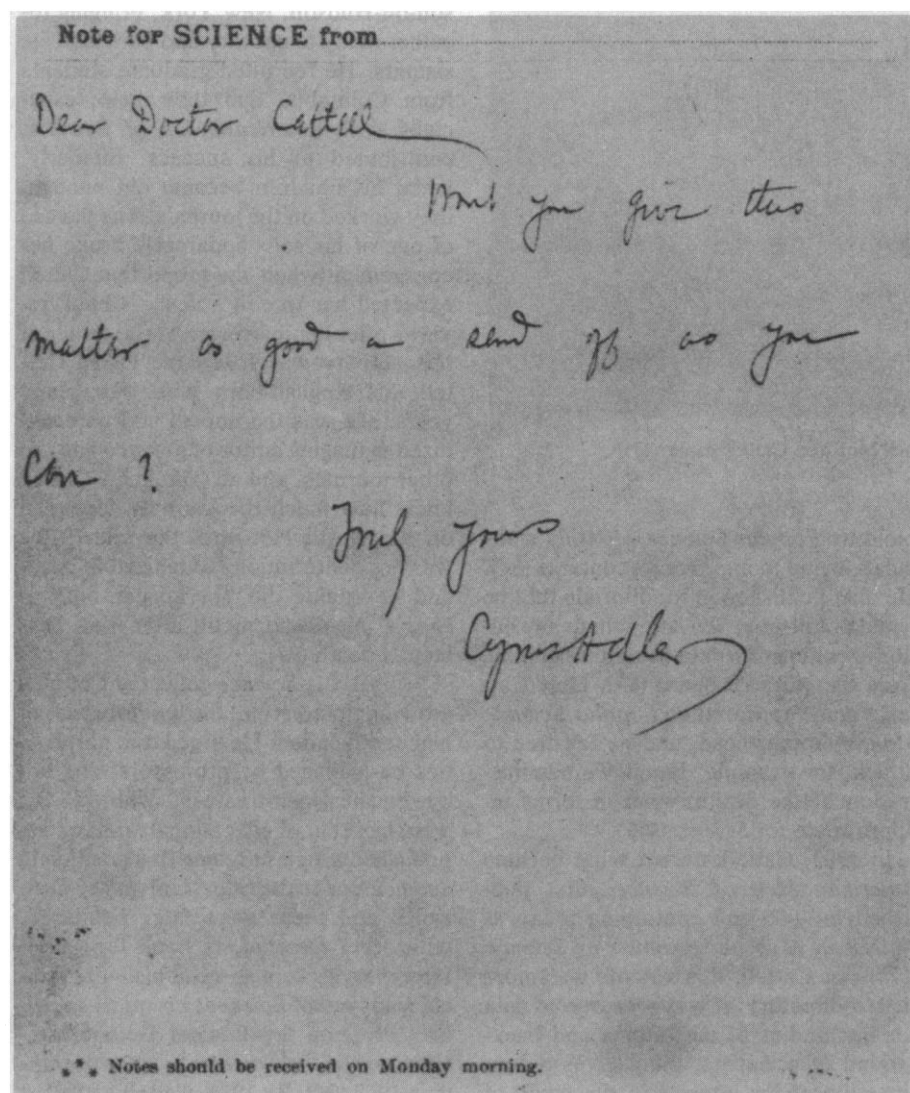 Note for SCIENCE from
Dear Doctor Cattell
Won't you give this
matter as good a send off as you
can ?
Truly yours
Cyrus Adler
*** Notes should be received on Monday morning.